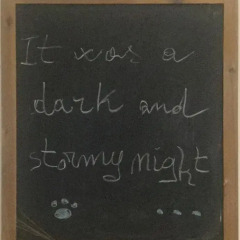 It was a
dark and
stormy night
...